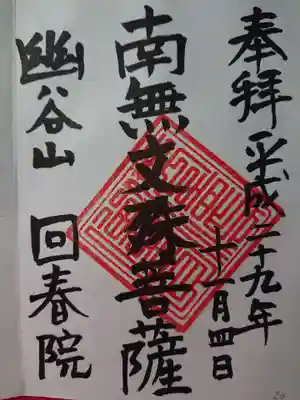 奉拝 平成二十九年
十一月四日
南無文殊菩薩
幽谷山 回春院
20